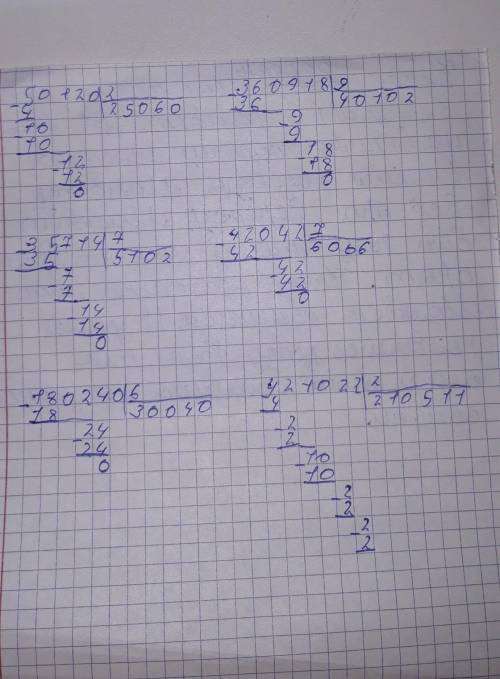 -50120|2
4 25060
-10
10
-12
12
0
-360918|9
36 40102
-9
9
-18
18
0
-35714|7
35 5102
-7
7
-14
14
0
-42042|7
42 6066
-42
42
0
-180240|6
18 30040
-24
24
0
421022|2
4 210511
-2
2
-10
10
-2
2
-2
2